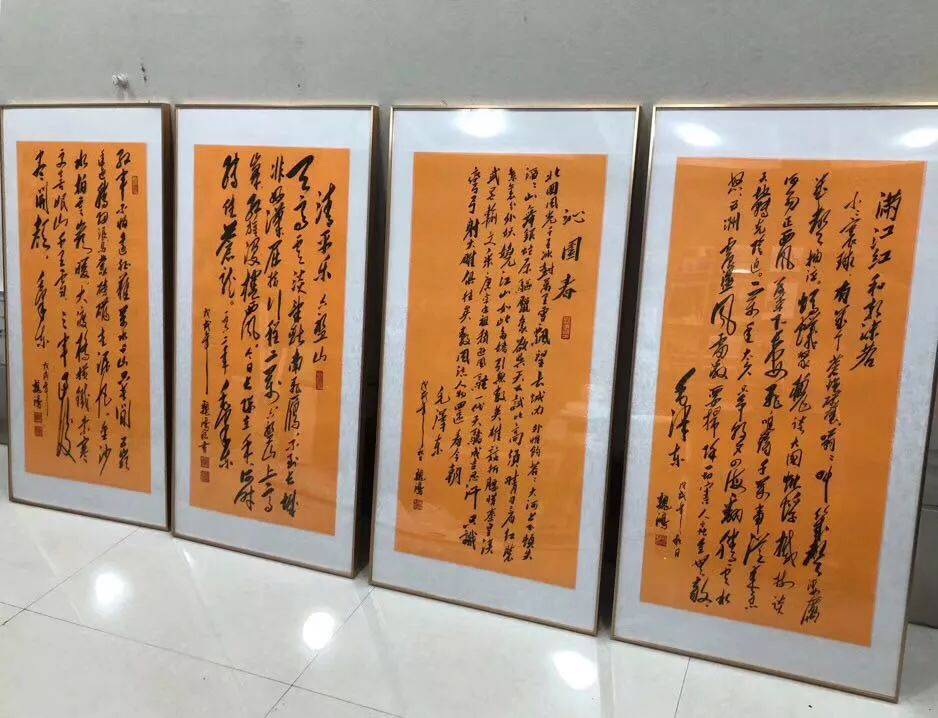 红军不怕远征难万水千山只等闲五岭
逶迤腾细浪乌蒙磅礴走泥丸金沙
水拍云崖暖大渡桥横铁索寒
更喜岷山千里雪三军过后
尽开颜 毛泽东
戊戌年
清平乐 六盘山
天高云淡望断南飞雁不到长城
非好汉屈指行程二万六盘山上高
峰红旗漫卷西风今日长缨在手何时
缚住苍龙 毛泽东
戊戌年
沁园春
北国风光千里冰封万里雪飘望长城内外惟余莽莽大河上下顿失
滔滔山舞银蛇原驰蜡象欲与天公试比高须晴日看红装
素裹分外妖娆江山如此多娇引无数英雄竞折腰惜秦皇汉
武略输文采唐宗宋祖稍逊风骚一代天骄成吉思汗只识
弯弓射大雕俱往矣数风流人物还看今朝
毛澤东
戊戌年
满江红 和郭沫若
小小寰球有几个苍蝇碰壁嗡嗡叫几声凄厉
几声抽泣蚂蚁缘槐夸大国蚍蜉撼树谈
何易正西风落叶下长安飞鸣镝多少事从来急
天地转光阴迫一万年太久只争朝夕四海翻腾云水
怒五洲震荡风雷激要扫除一切害人虫全无敌
毛泽东
戊戌年秋日